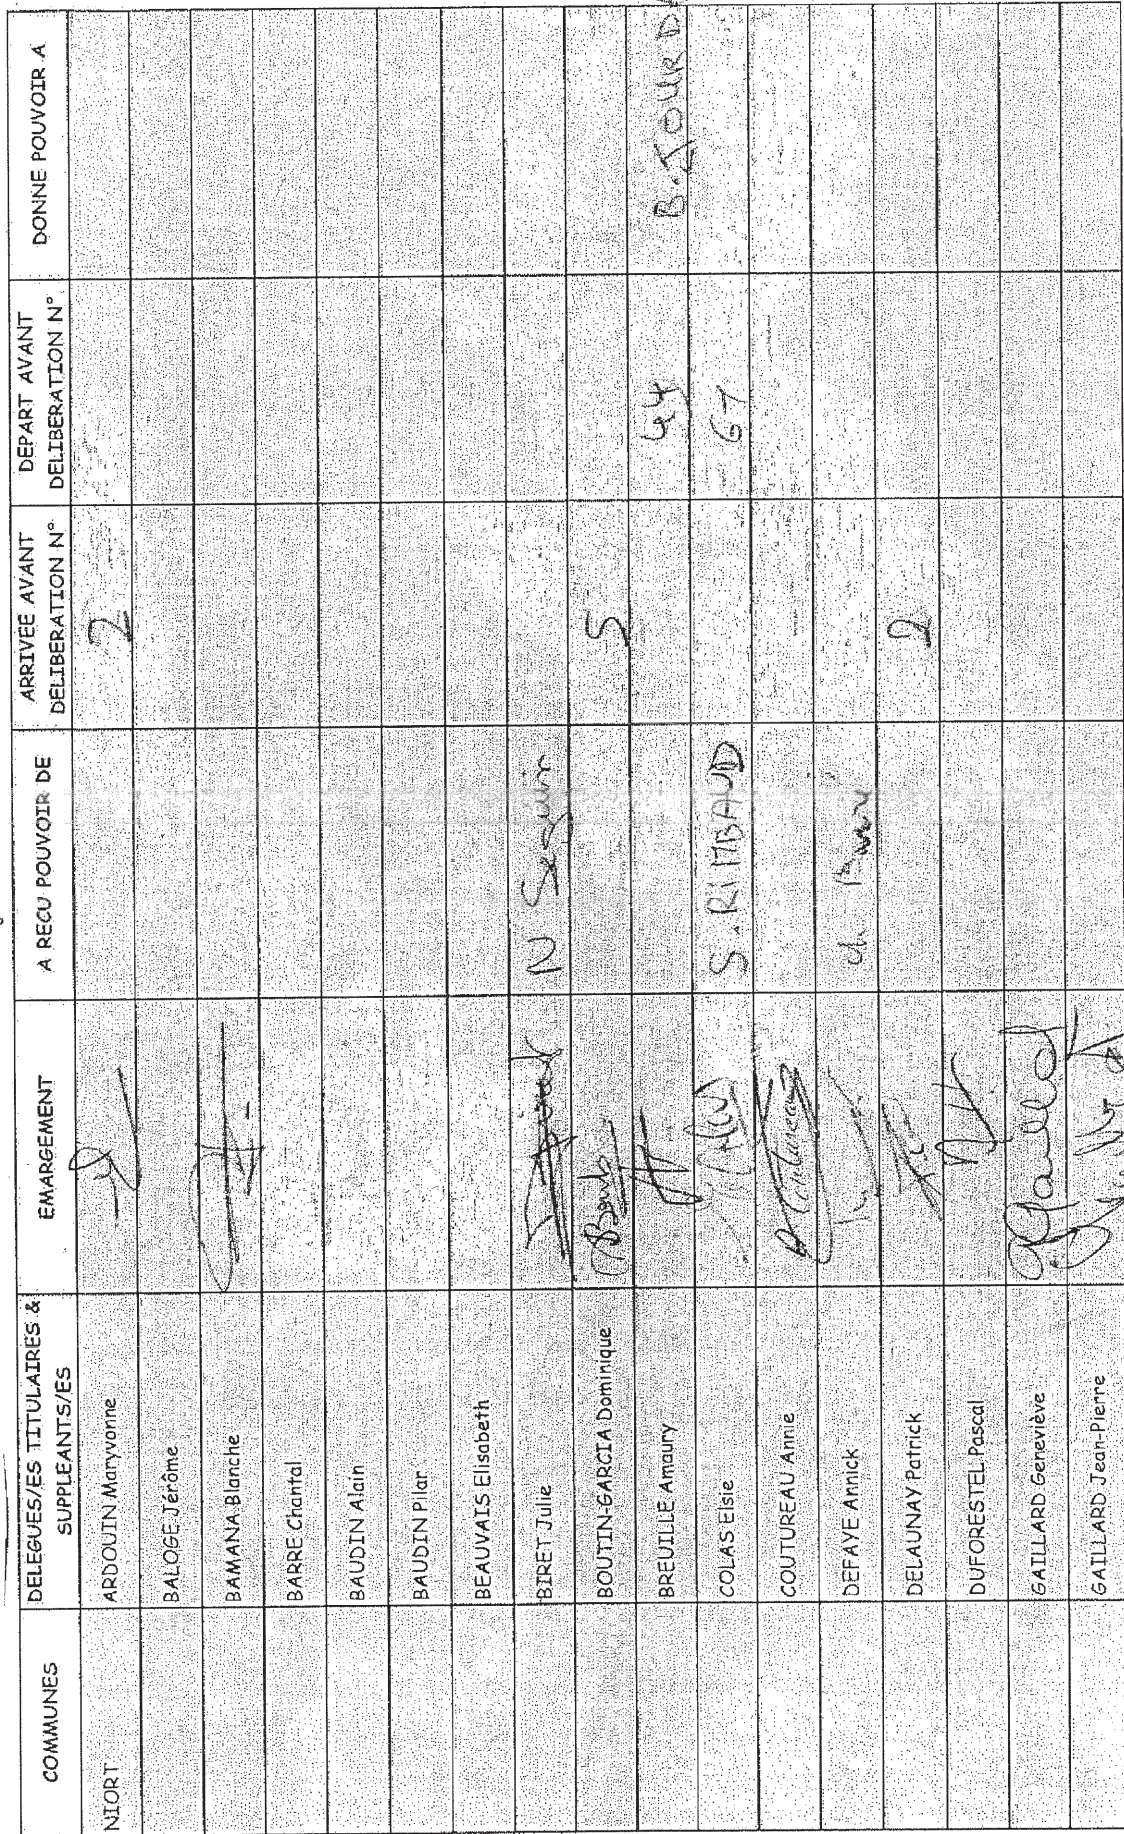 COMMUNES
DELEGUES/ES TITULAIRES &
SUPPLEANTS/ES
EMARGEMENT
A RECU POUVOIR DE
ARRIVEE AVANT
DELIBERATION N°
DEPART AVANT
DELIBERATION N°
DONNE POUVOIR A
NIORT
ARDOUIN Maryvonne
2
BALOGE Jérôme
BAMANA Blanche
BARRE Chantal
BAUDIN Alain
BAUDIN Pilar
BEAUVAIS Elisabeth
BIRET Julie
N Seguin
BOUTIN-GARCIA Dominique
5
BREUILLE Amaury
44
B. JOURD
COLAS Elsie
S. RIMBAUD
67
COUTUREAU Annie
DEFAYE Annick
DELAUNAY Patrick
2
DUFORESTEL Pascal
GAILLARD Geneviève
GGaillard
GAILLARD Jean-Pierre